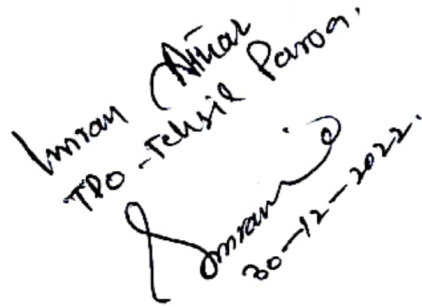 Imran
TPO - Tehsil Paroa.
Imran
30-12-2022.